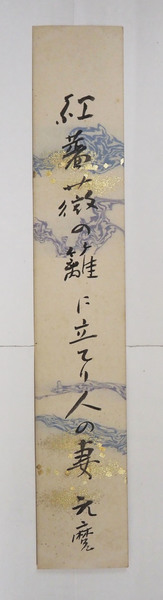 紅薔薇の籬に立てり人の妻 元麿